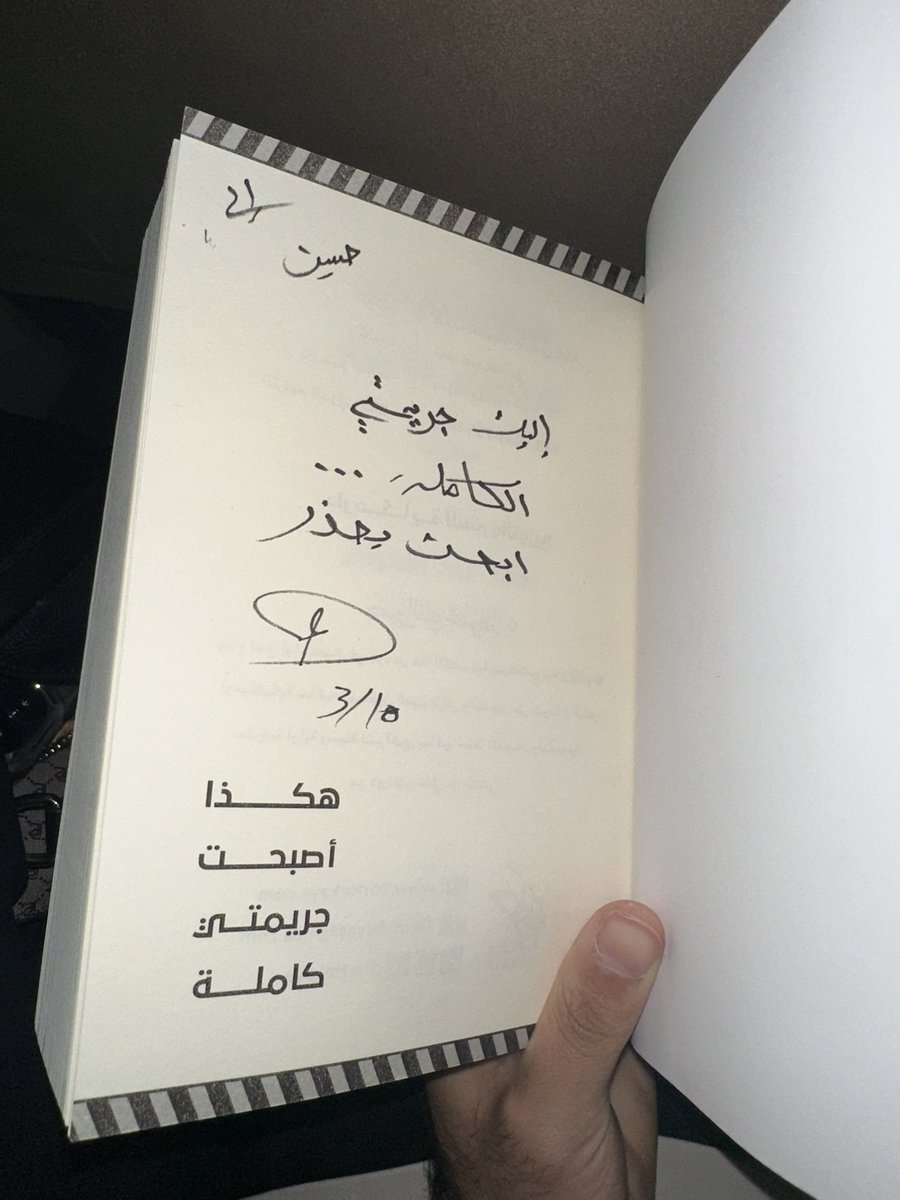 إلى
حسين
إليك جريمتي
الكاملة ...
ابحث بحذر
3/10
هكذا
أصبحت
جريمتي
كاملة